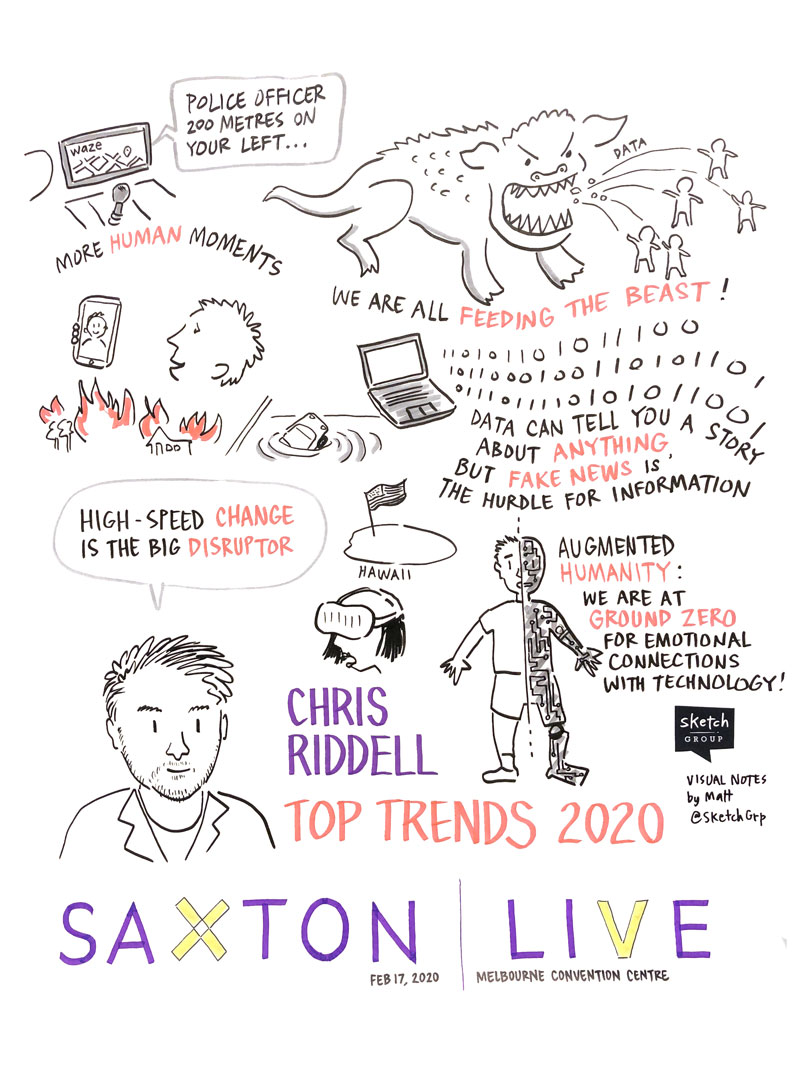 POLICE OFFICER
200 METRES ON
YOUR LEFT...
waze
MORE HUMAN MOMENTS
DATA
WE ARE ALL FEEDING THE BEAST!
DATA CAN TELL YOU A STORY
ABOUT ANYTHING,
BUT FAKE NEWS IS
THE HURDLE FOR INFORMATION
HIGH-SPEED CHANGE
IS THE BIG DISRUPTOR
HAWAII
AUGMENTED
HUMANITY:
WE ARE AT
GROUND ZERO
FOR EMOTIONAL
CONNECTIONS
WITH TECHNOLOGY!
CHRIS
RIDDELL
TOP TRENDS 2020
sketch
GROUP
VISUAL NOTES
by Matt
@sketchGrp
SAXTON LIVE
FEB 17, 2020
MELBOURNE CONVENTION CENTRE